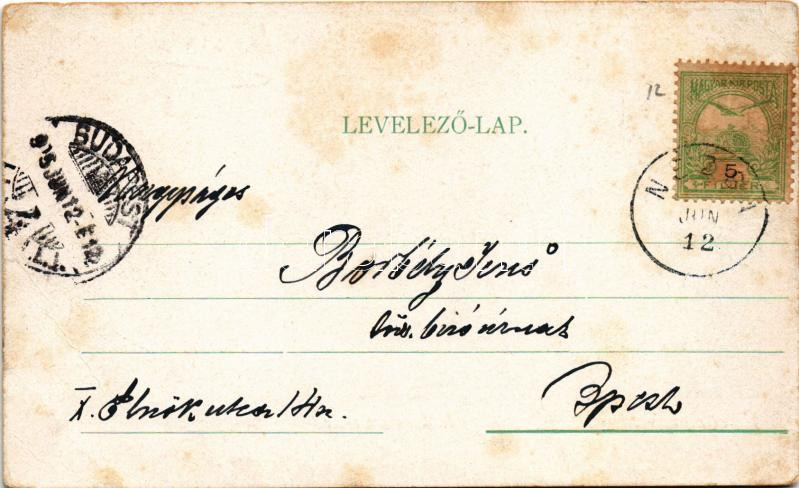 LEVELEZŐ-LAP.
12
MAGYAR KIR. POSTA
5
JUN
12
BUDAPEST
915 JUN 12
Nagyságos
Borbély Jenő
törv. biró úrnak
X. Elnök utca 14a.
Bpest